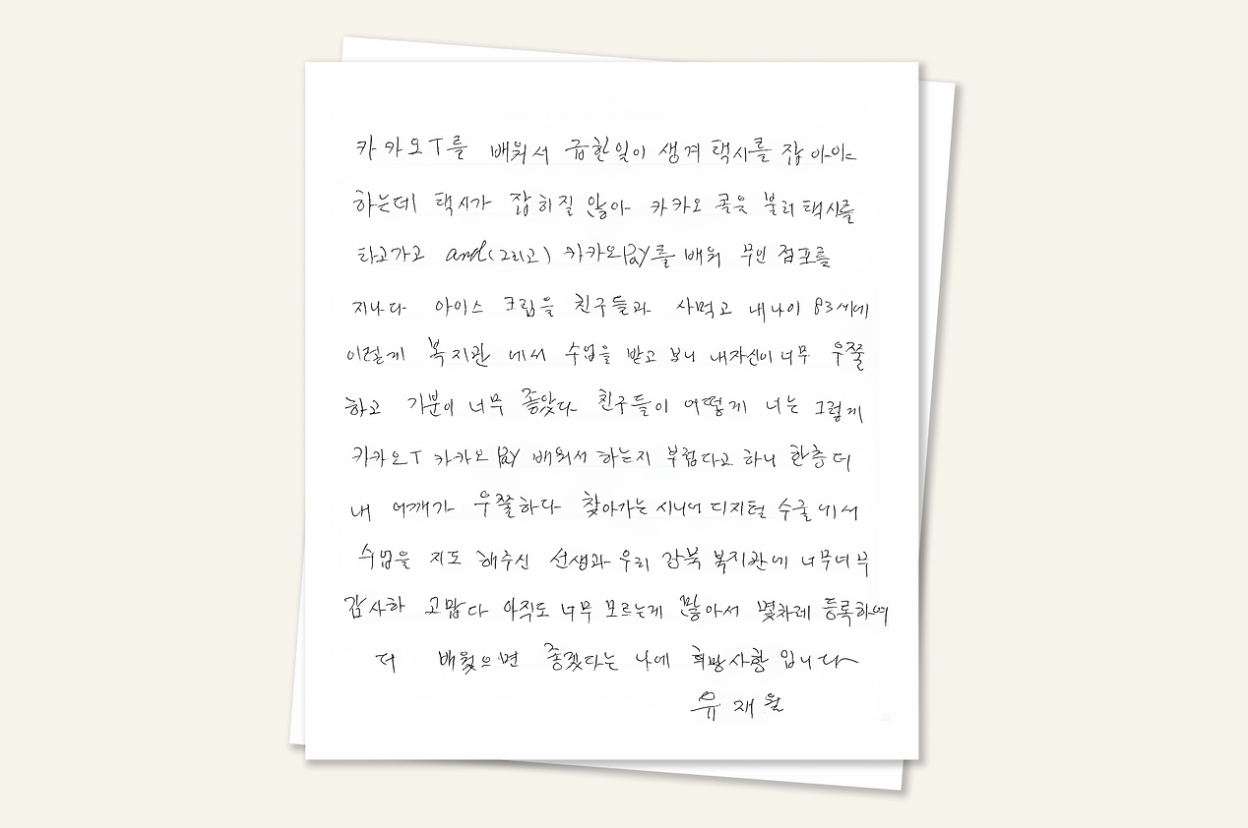 카카오T를 배워서 급한일이 생겨 택시를 잡아야
하는데 택시가 잡히질 않아 카카오 콜읏 불러 택시를
타고가고 and(그리고) 카카오Pay를 배워 무인 점포를
지나다 아이스 크림을 친구들과 사먹고 내나이 83세에
이렇게 복지관 에서 수업을 받고 보니 내자신이 너무 우쭐
하고 기분이 너무 좋았다 친구들이 어떻게 너는 그렇게
카카오T 카카오 Pay 배워서 하는지 부럽다고 하니 한층 더
내 어깨가 우쭐하다 찾아가는 시니어 디지털 수굴에서
수업을 지도 해주신 선생과 우리 강북 복지관에 너무너무
감사하 고맙다 아직도 너무 모르는게 많아서 몇차례 등록하여
더 배웠으면 좋겠다는 나에 희망사항 입니다
유재월